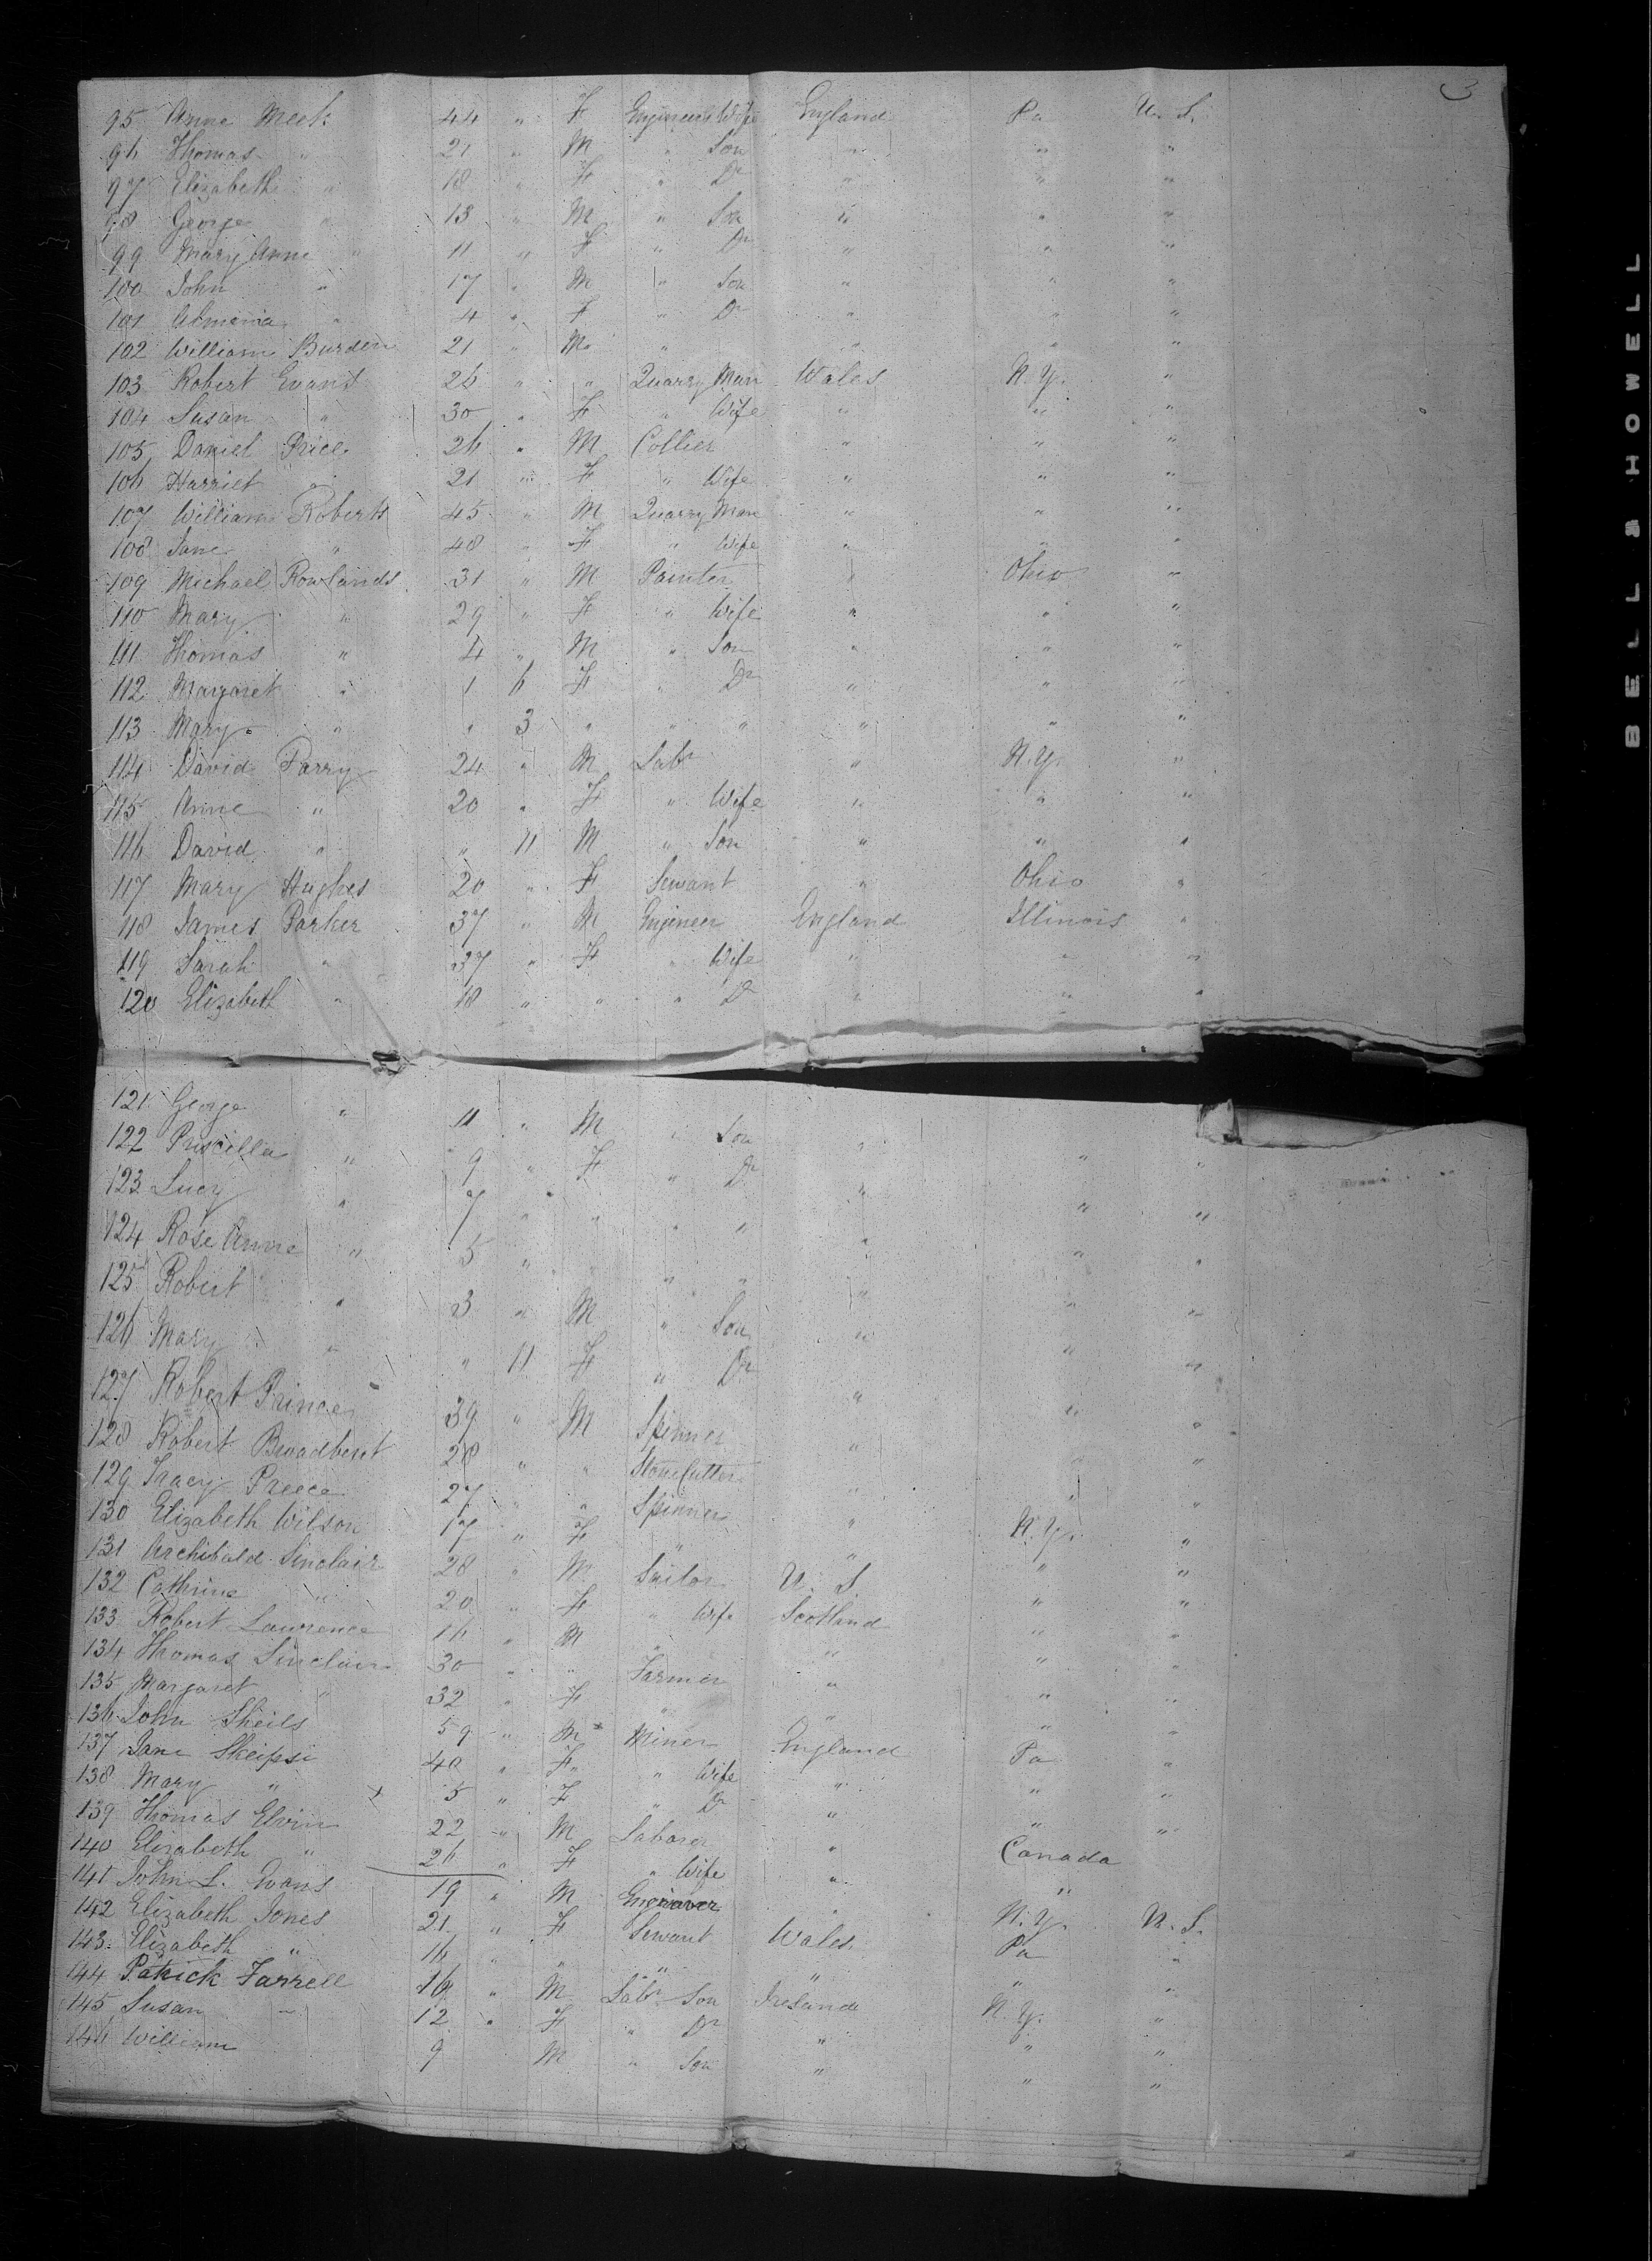 3
95 Anne Meek 44 " F Engineers Wife England Pa U. S.
96 Thomas " 21 " M " Son " " "
97 Elizabeth " 18 " F " Dr " " "
98 George " 13 " M " Son " " "
99 Mary Anne " 11 " F " Dr " " "
100 John " 17 " M " Son " " "
101 " 4 " F " Dr " " "
102 William Burden 21 " M " " " "
103 Robert Evans 26 " " Quarry Man Wales N.Y. "
104 Susan " 30 " F " Wife " " "
105 Daniel Price 26 " M Collier " " "
106 Harriet " 21 " F " Wife " " "
107 William Roberts 45 " M Quarry Man " " "
108 Jane " 48 " F " Wife " " "
109 Michael Rowlands 31 " M Painter " Ohio "
110 Mary " 29 " F " Wife " " "
111 Thomas " 4 " M " Son " " "
112 Margaret " 1 6 F " Dr " " "
113 Mary " " 3 " " " " " "
114 David Parry 24 " M Labr " N.Y. "
115 Anne " 20 " F " Wife " " "
116 David " " 11 M " Son " " "
117 Mary Hughes 20 " F Servant " Ohio "
118 James Parker 37 " M Engineer England Illinois "
119 Sarah " 37 " F " Wife " " "
120 Elizabeth " 18 " " " Dr " " "
121 George " 11 " M " Son "
122 Priscilla " 9 " F " Dr " " "
123 Lucy " 7 " " " " " " "
124 Rose Anne " 5 " " " " " " "
125 Robert " 3 " M " Son " " "
126 Mary " " 11 F " Dr " " "
127 Robert Prince 39 " M Spinner " " "
128 Robert Broadbent 28 " " Stone Cutter " " "
129 Tracy Preece 27 " " Spinner " " "
130 Elizabeth Wilson 17 " F " " N.Y. "
131 Archibald Sinclair 28 " M Sailor U. S. " "
132 Cathrine " 20 " F " Wife Scotland " "
133 Robert Lawrence 16 " M " " " "
134 Thomas Sinclair 30 " " Farmer " " "
135 Margaret " 32 " F " " " "
136 John Sheils 59 " M Miner England Pa "
137 Jane Skeipsi 40 " F " Wife " " "
138 Mary " 5 " F " Dr " " "
139 Thomas Elvin 22 " M Laborer " Canada
140 Elizabeth " 26 " F " Wife " "
141 John L. Evans 19 " M Engraver " N.Y. U. S.
142 Elizabeth Jones 21 " F Servant Wales Pa "
143 Elizabeth " 16 " " " " " "
144 Patrick Farrell 16 " M Labr Son Ireland N.Y. "
145 Susan " 12 " F " Dr " " "
146 William 9 M " Son " " "
BELL & HOWELL